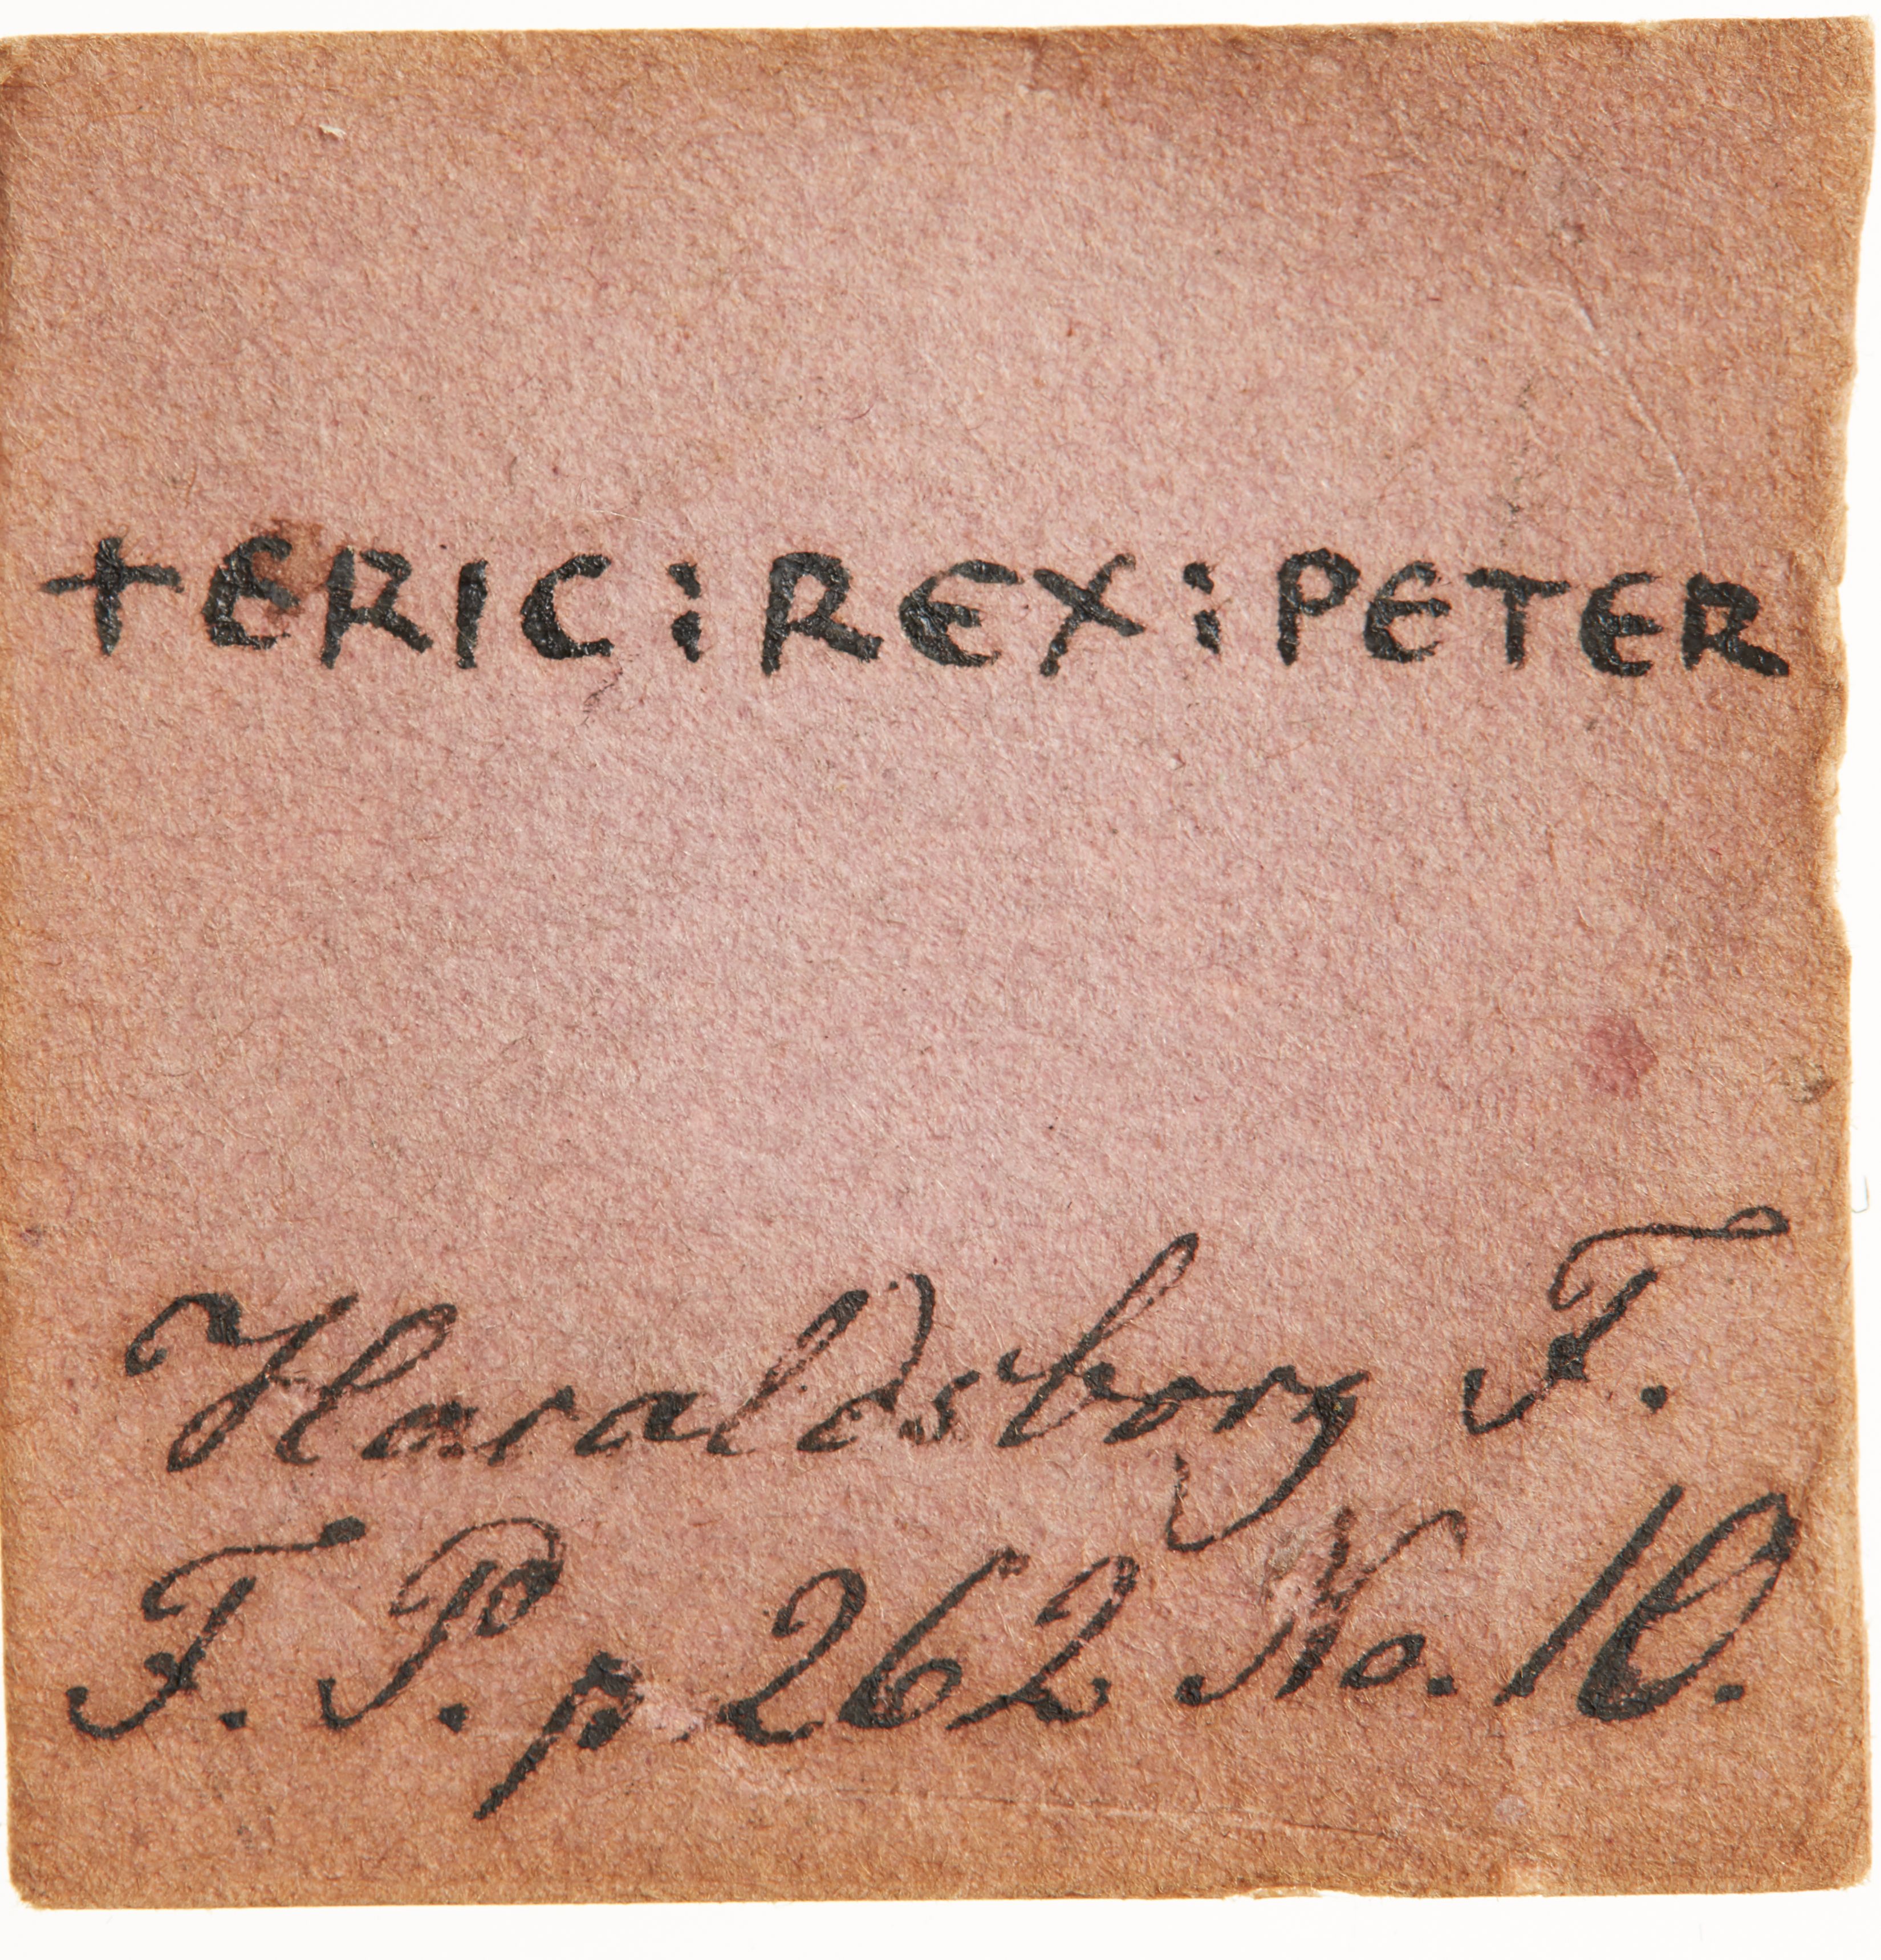 +ERIC:REX:PETER
Haraldsborg F.
F. P. p 262 No. 10.